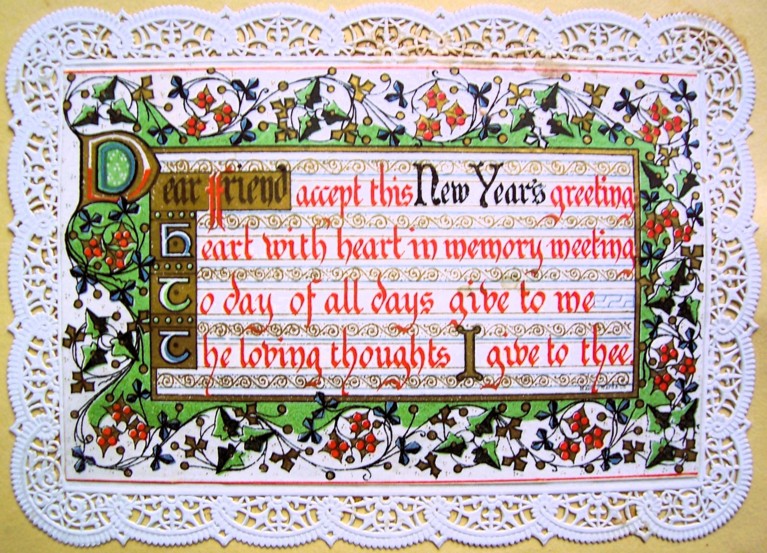 Dear friend accept this New Year's greeting
Heart with heart in memory meeting
To day of all days give to me
The loving thoughts I give to thee.